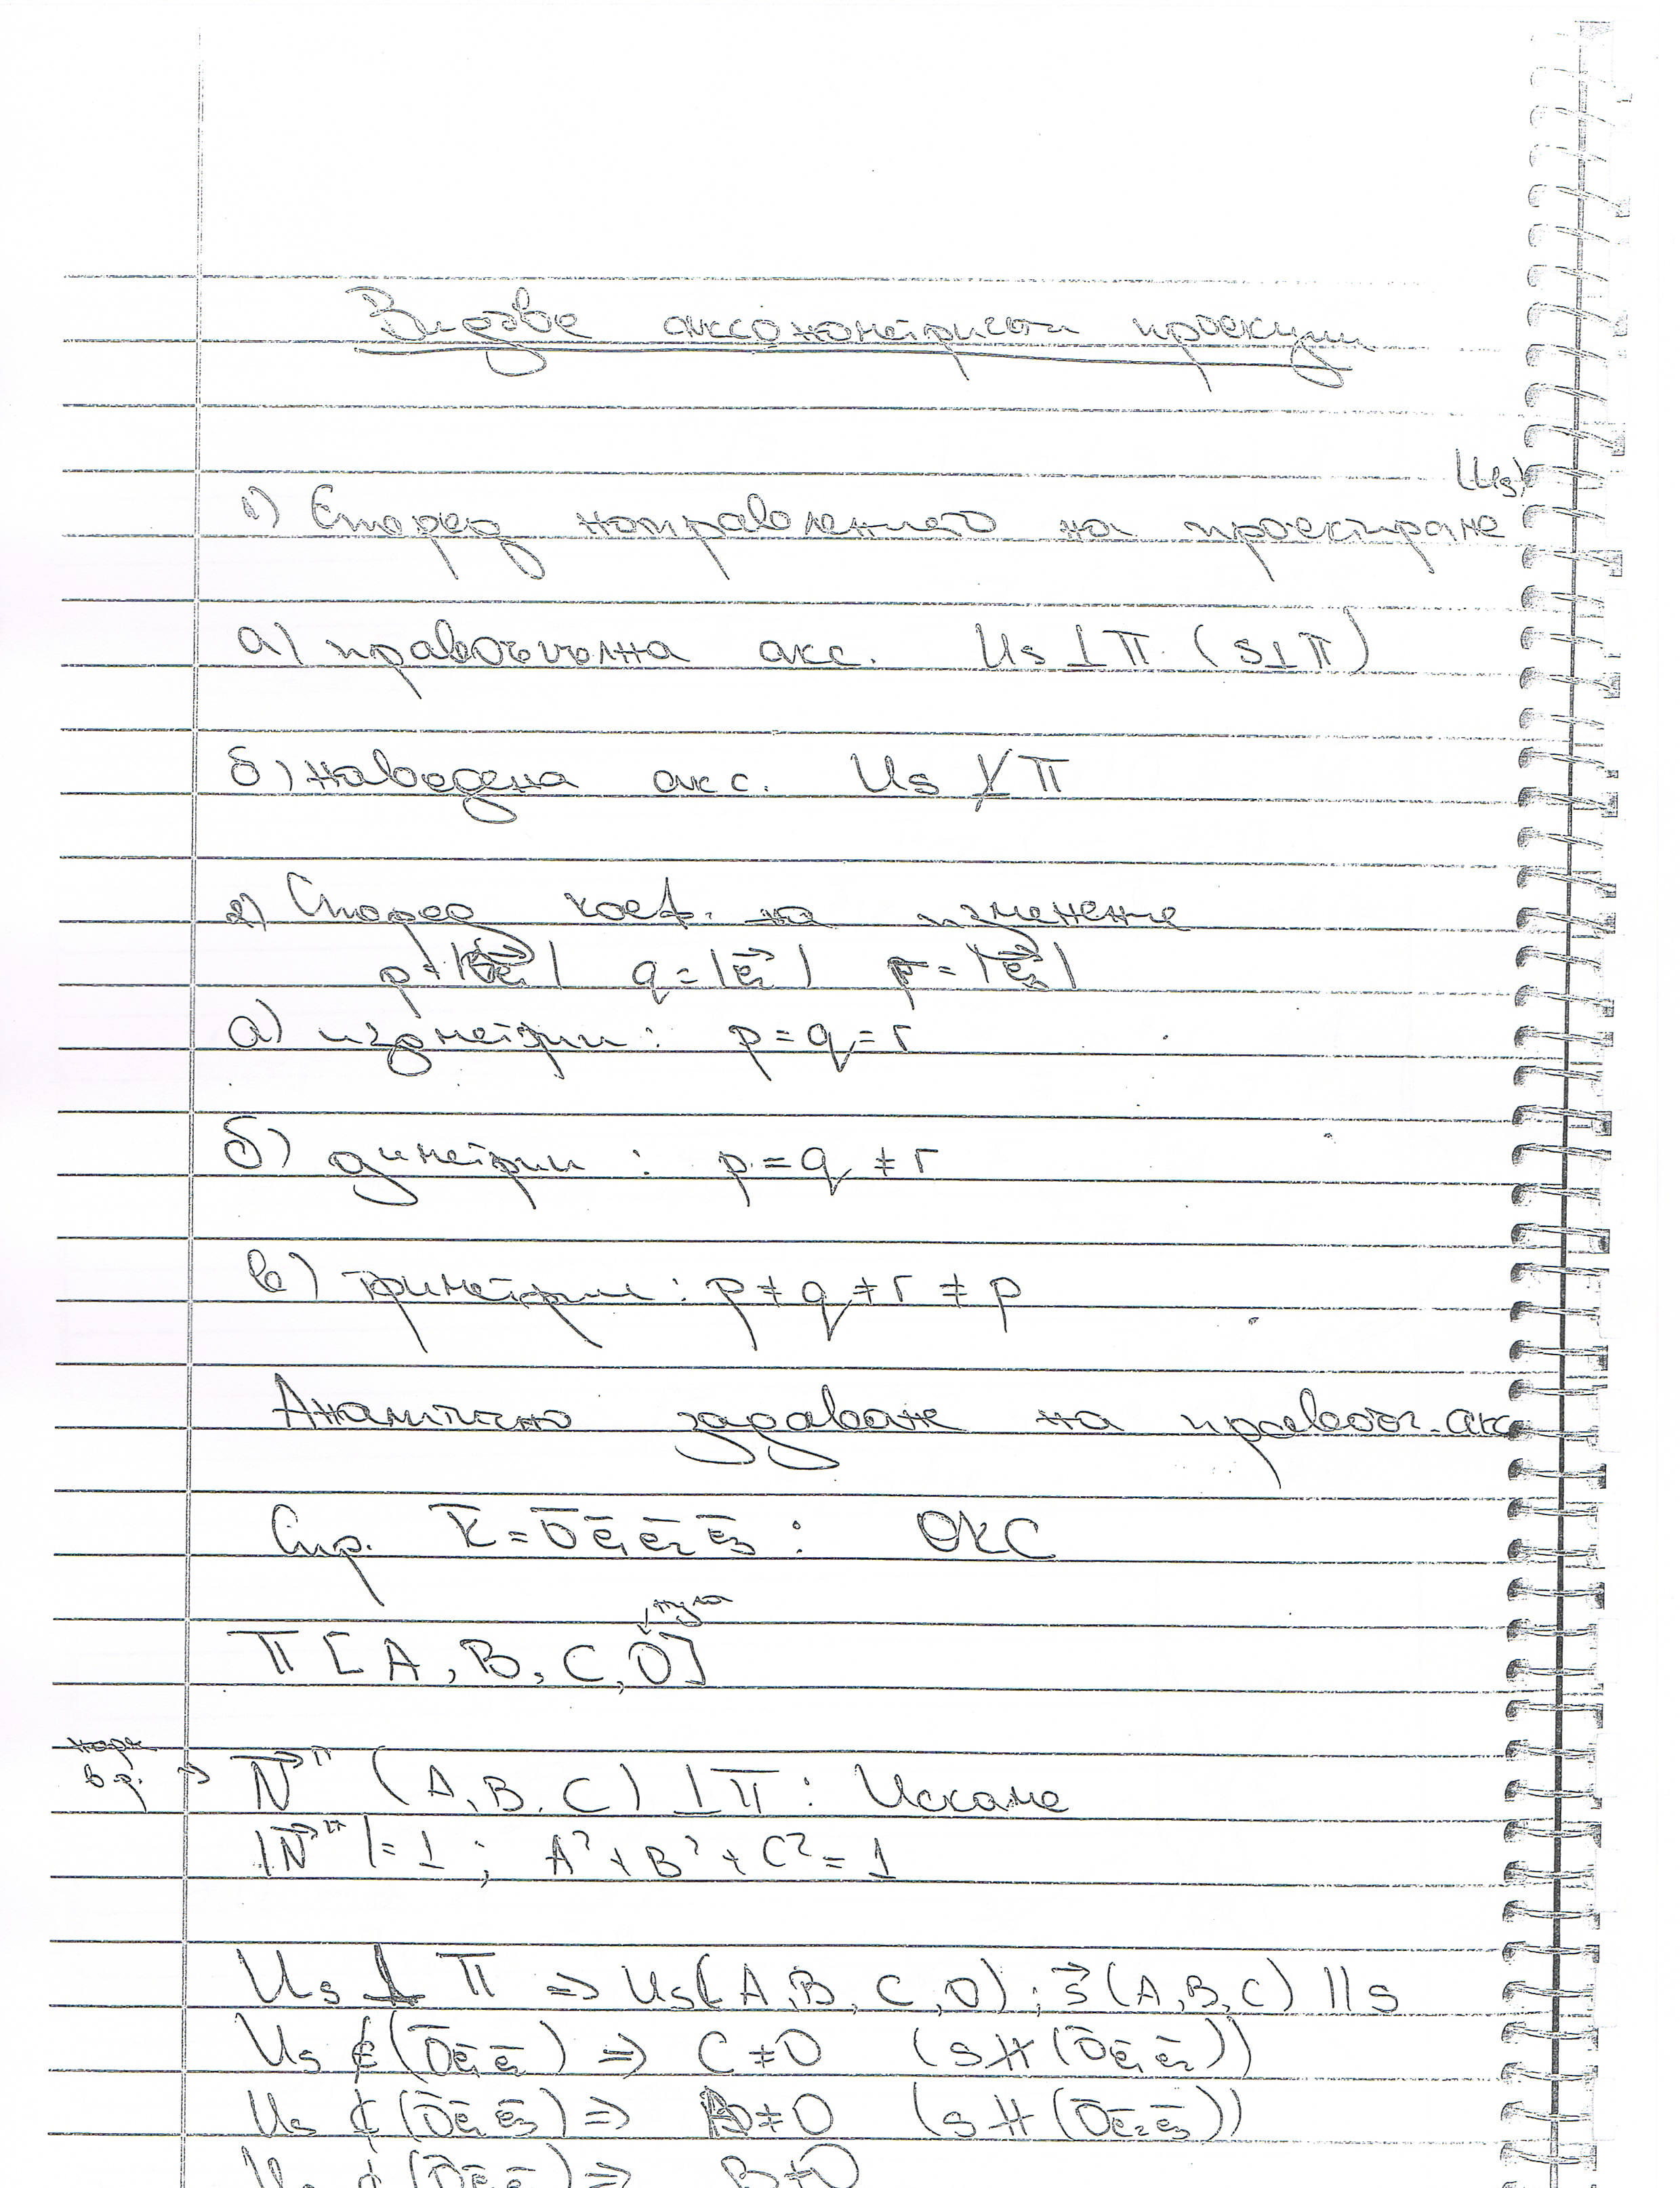 Видове аксонометрични проекции
(Us)
1) Според направлението на проектиране
а) правоъгълна акс. Us ⊥ π (s ⊥ π)
б) наведена акс. Us ⊥̸ π
2) Според коеф. на изменение
p = |e₁| q = |e₂| r = |e₃|
а) изометрии: p = q = r
б) диметрии : p = q ≠ r
в) триметрии: p ≠ q ≠ r ≠ p
Аналитично задаване на правоъг. акс
Спр. K̄ = Ō ē₁ ē₂ ē₃ : ОКС
↓ нула
π [A, B, C, 0]
норм. в-р. → N⃗^π (A, B, C) ⊥ π : Искаме
|N⃗^π| = 1 ; A² + B² + C² = 1
Us ⊥ π ⇒ Us(A, B, C, 0) ; s⃗ (A, B, C) || s
Us ∉ (Ō ē₁ ē₂) ⇒ C ≠ 0 (s ∦ (Ō ē₁ ē₂))
Us ∉ (Ō ē₂ ē₃) ⇒ A ≠ 0 (s ∦ (Ō ē₂ ē₃))
B ≠ 0